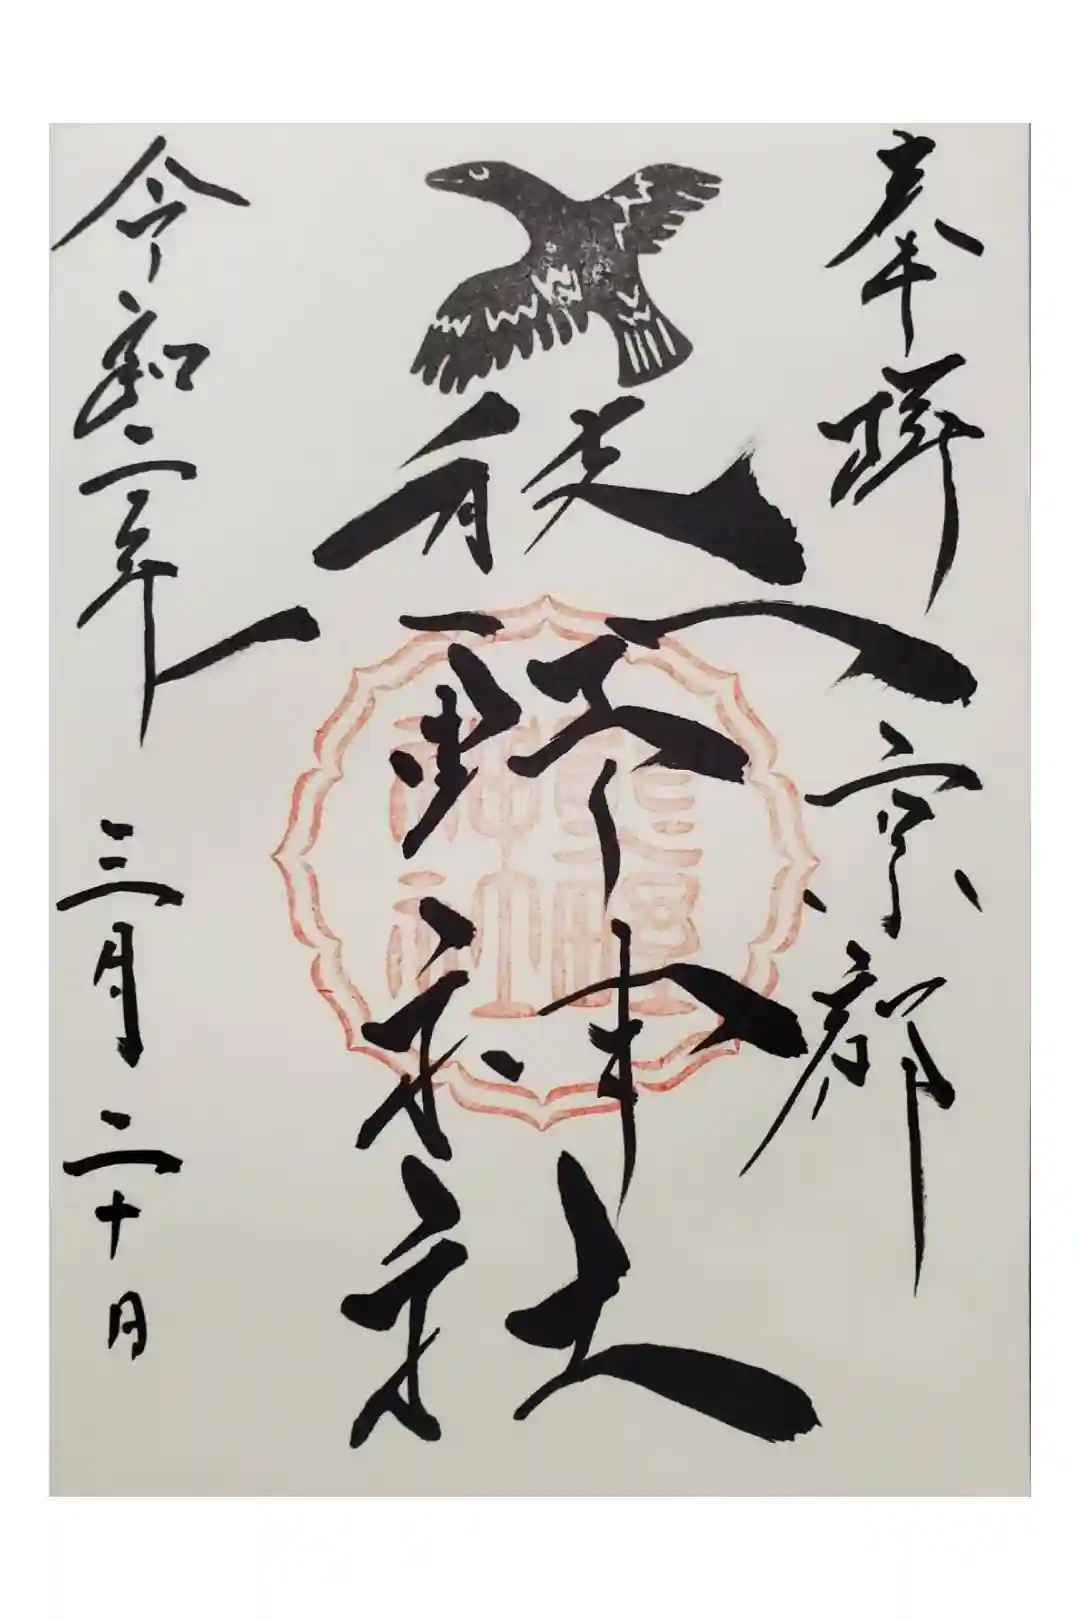 奉拝 京都
熊野神社
令和二年 三月 二十日